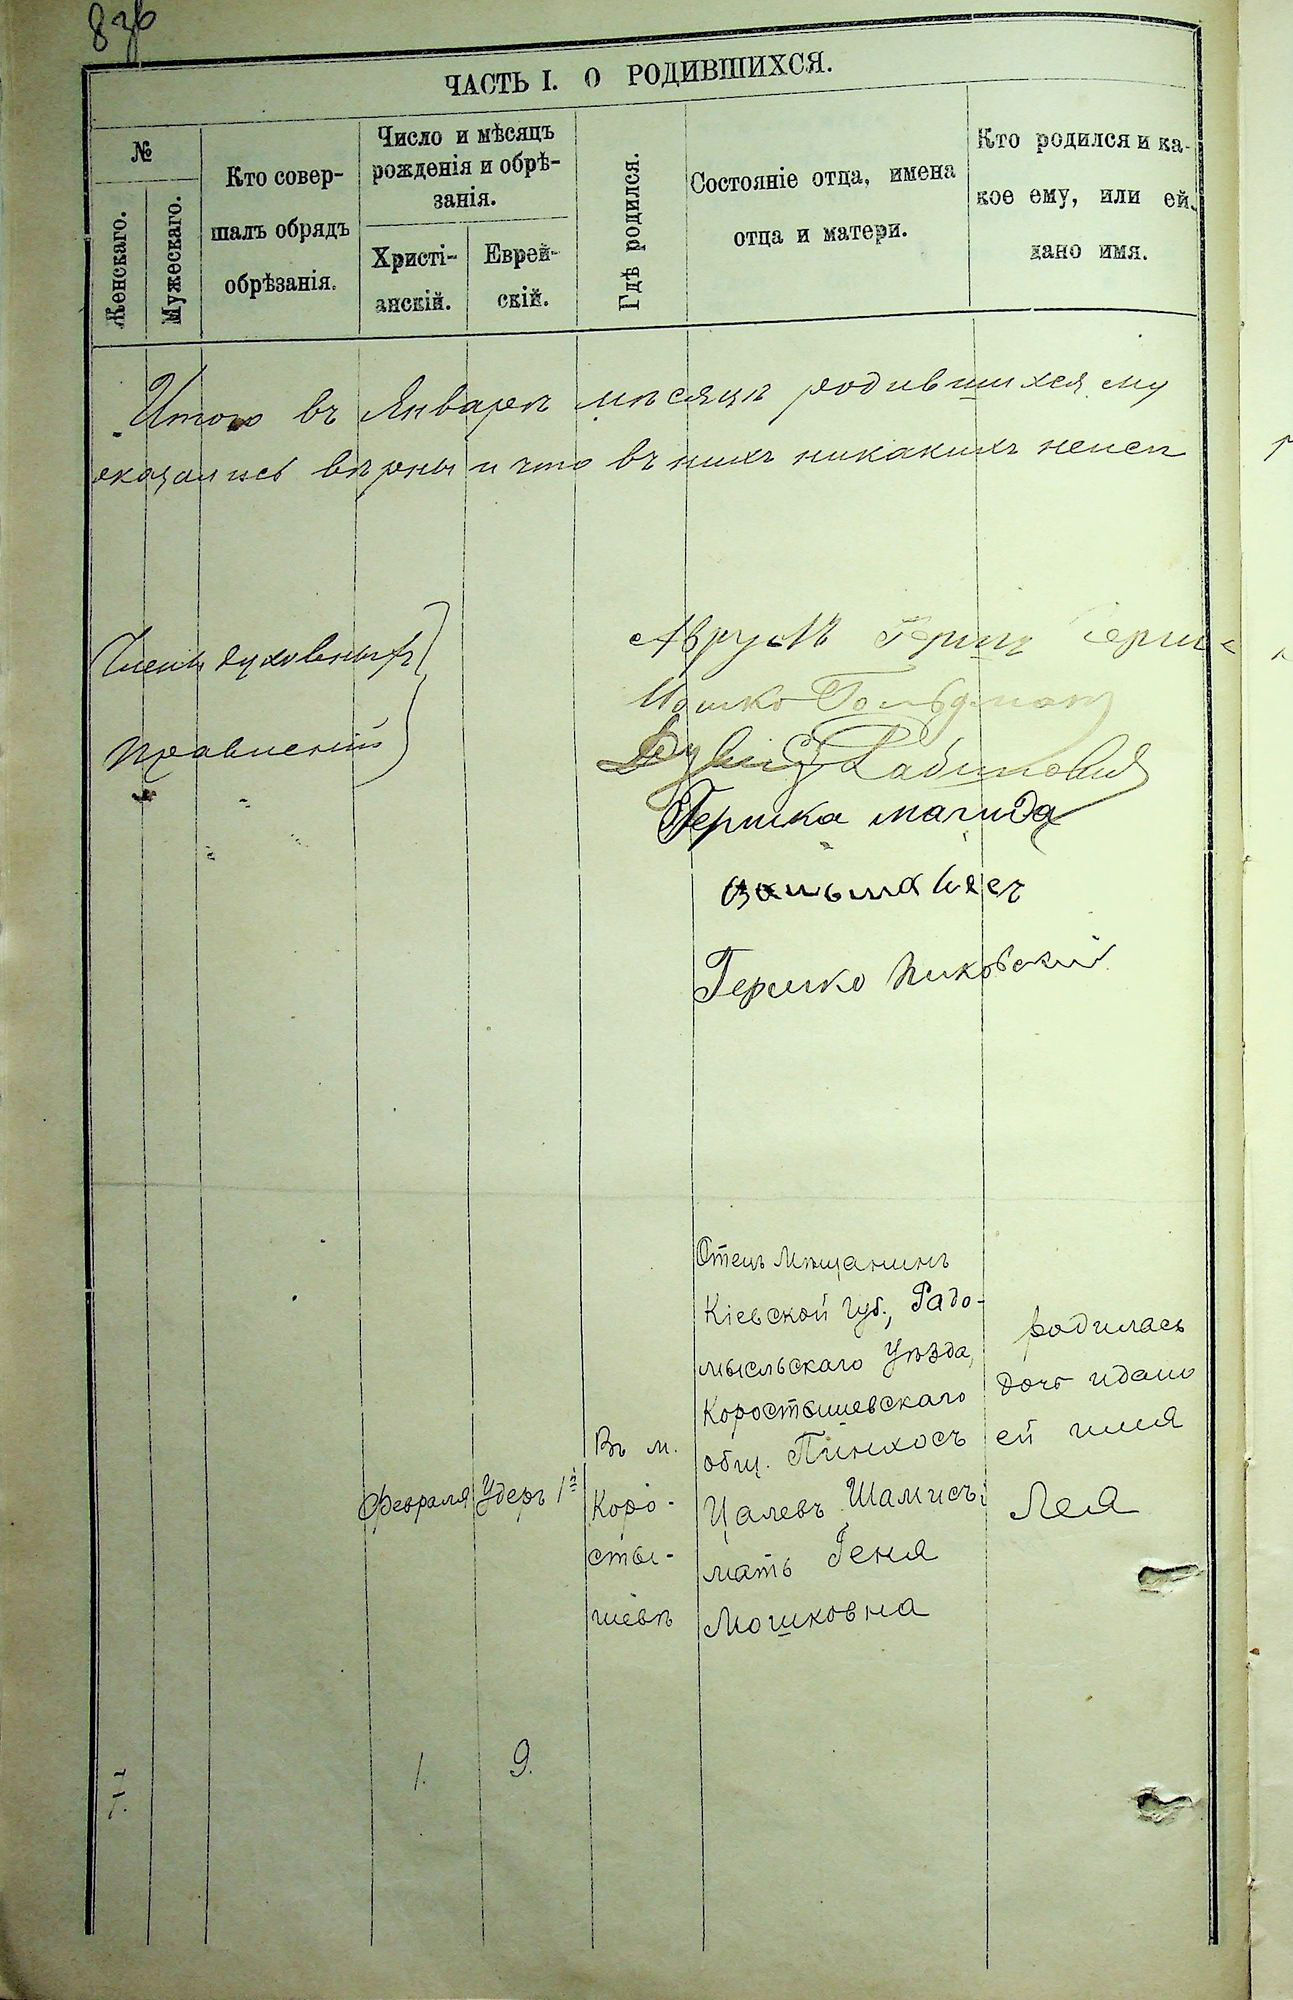 ЧАСТЬ I. О РОДИВШИХСЯ.
№
Женскаго.
Мужескаго.
Кто совер-
шалъ обрядъ
обрѣзанія.
Число и мѣсяцъ
рожденія и обрѣ-
занія.
Христі-
анскій.
Еврей-
скій.
Гдѣ родился.
Состояніе отца, имена
отца и матери.
Кто родился и ка-
кое ему, или ей,
дано имя.
Итого въ Январѣ мѣсяцѣ родившихся му
оказались вѣрны и что въ нихъ никакихъ неисп
Члены духовныхъ
правленій
Аврумъ Гершъ
Мошко Гольдман
Рабинович
Гершка магида
Гершко Пиковский
Февраля
Адеръ 1й
Въ м.
Коро-
сты-
шевѣ
Отецъ Мѣщанинъ
Кіевской губ., Радо-
мысльскаго Уѣзда,
Коростышевскаго
общ. Пинхосъ
Цалевъ Шамисъ;
мать Геня
Мошковна
родилась
дочь и дано
ей имя
Лея
1.
9.